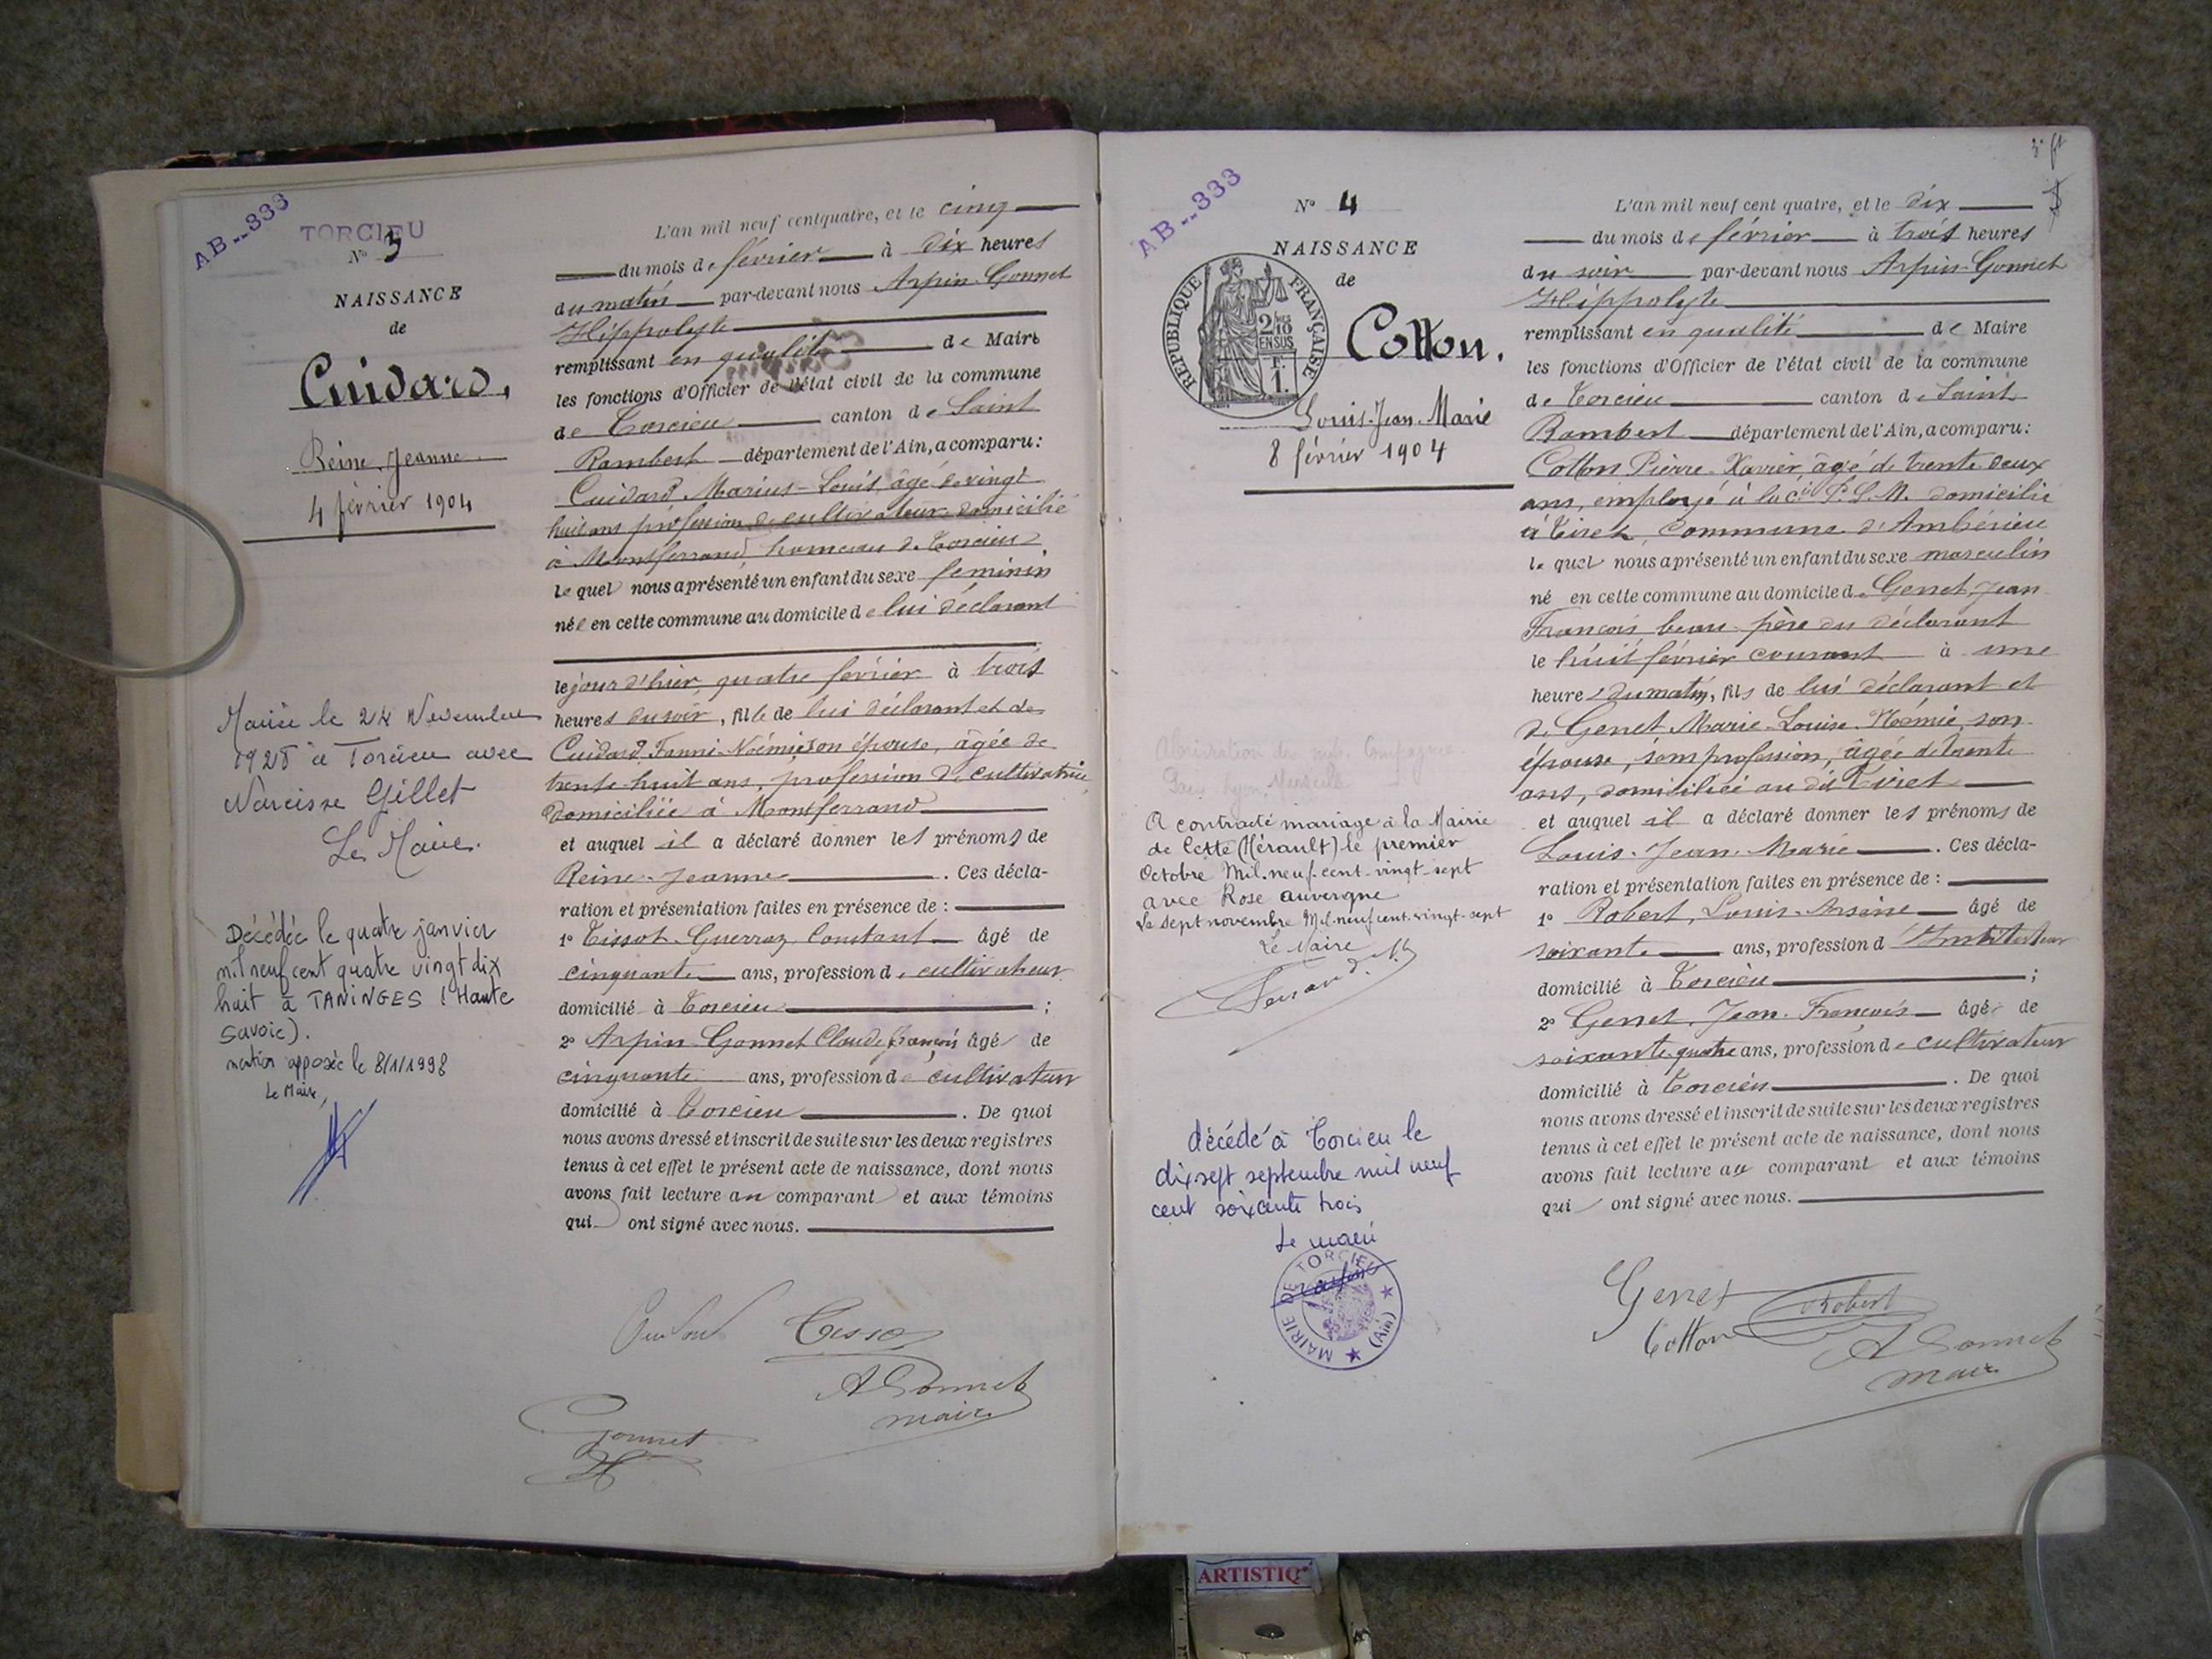 AB--333
TORCIEU
N° 3
NAISSANCE
de
Cuidard,
Reine Jeanne
4 février 1904
Mariée le 24 Novembre
1928 à Torcieu avec
Narcisse Gillet
Le Maire.
Décédée le quatre janvier
mil neuf cent quatre vingt dix
huit à TANINGES (Haute
Savoie).
mention apposée le 8/1/1998
Le Maire,
L'an mil neuf cent quatre, et le cinq
du mois de février à dix heures
du matin par-devant nous Arpin-Gonnet
Hippolyte
remplissant en qualité de Maire
les fonctions d'Officier de l'état civil de la commune
de Torcieu canton de Saint
Rambert département de l'Ain, a comparu :
Cuidard Marius-Louis, âgé de vingt
huit ans profession de cultivateur domicilié
à Montferrand hameau de Torcieu
lequel nous a présenté un enfant du sexe féminin
née en cette commune au domicile de lui déclarant
le jour d'hier quatre février à trois
heures du soir, fille de lui déclarant et de
Cuidard Fanni-Noémie son épouse, âgée de
trente-huit ans, profession de cultivatrice
domiciliée à Montferrand
et auquel il a déclaré donner les prénoms de
Reine-Jeanne . Ces décla-
ration et présentation faites en présence de :
1° Tissot-Guerraz Constant âgé de
cinquante ans, profession de cultivateur
domicilié à Torcieu ;
2° Arpin-Gonnet Claude françois âgé de
cinquante ans, profession de cultivateur
domicilié à Torcieu . De quoi
nous avons dressé et inscrit de suite sur les deux registres
tenus à cet effet le présent acte de naissance, dont nous
avons fait lecture au comparant et aux témoins
qui ont signé avec nous.
A Gonnet
maire
Gonnet
AB--333
N° 4
NAISSANCE
de
RÉPUBLIQUE FRANÇAISE
2/10
EN SUS
F.
1.
Cotton.
Louis-Jean-Marie
8 février 1904
A contracté mariage à la Mairie
de Cette (Hérault) le premier
Octobre Mil-neuf-cent-vingt-sept
avec Rose Auvergne
Le sept novembre Mil-neuf cent-vingt-sept
Le Maire
décédé à Torcieu le
dix sept septembre mil neuf
cent soixante trois
Le maire
MAIRIE DE TORCIEU (Ain)
L'an mil neuf cent quatre, et le dix
du mois de février à trois heures
du soir par-devant nous Arpin-Gonnet
Hippolyte
remplissant en qualité de Maire
les fonctions d'Officier de l'état civil de la commune
de Torcieu canton de Saint
Rambert département de l'Ain, a comparu :
Cotton Pierre-Xavier, âgé de trente deux
ans, employé à la Cie P. L. M. domicilié
à Tiret, Commune d'Ambérieu
lequel nous a présenté un enfant du sexe masculin
né en cette commune au domicile de Genet Jean
François beau-père du déclarant
le huit février courant à une
heure du matin, fils de lui déclarant et
de Genet Marie-Louise-Noémie, son
épouse, sans profession, âgée de trente
ans, domiciliée au dit Tiret
et auquel il a déclaré donner les prénoms de
Louis-Jean-Marie . Ces décla-
ration et présentation faites en présence de :
1° Robert, Louis-Arsène âgé de
soixante ans, profession d'Instituteur
domicilié à Torcieu ;
2° Genet, Jean-François âgé de
soixante quatre ans, profession de cultivateur
domicilié à Torcieu . De quoi
nous avons dressé et inscrit de suite sur les deux registres
tenus à cet effet le présent acte de naissance, dont nous
avons fait lecture au comparant et aux témoins
qui ont signé avec nous.
Genet
Robert
Cotton
A Gonnet
maire
ARTISTIQ